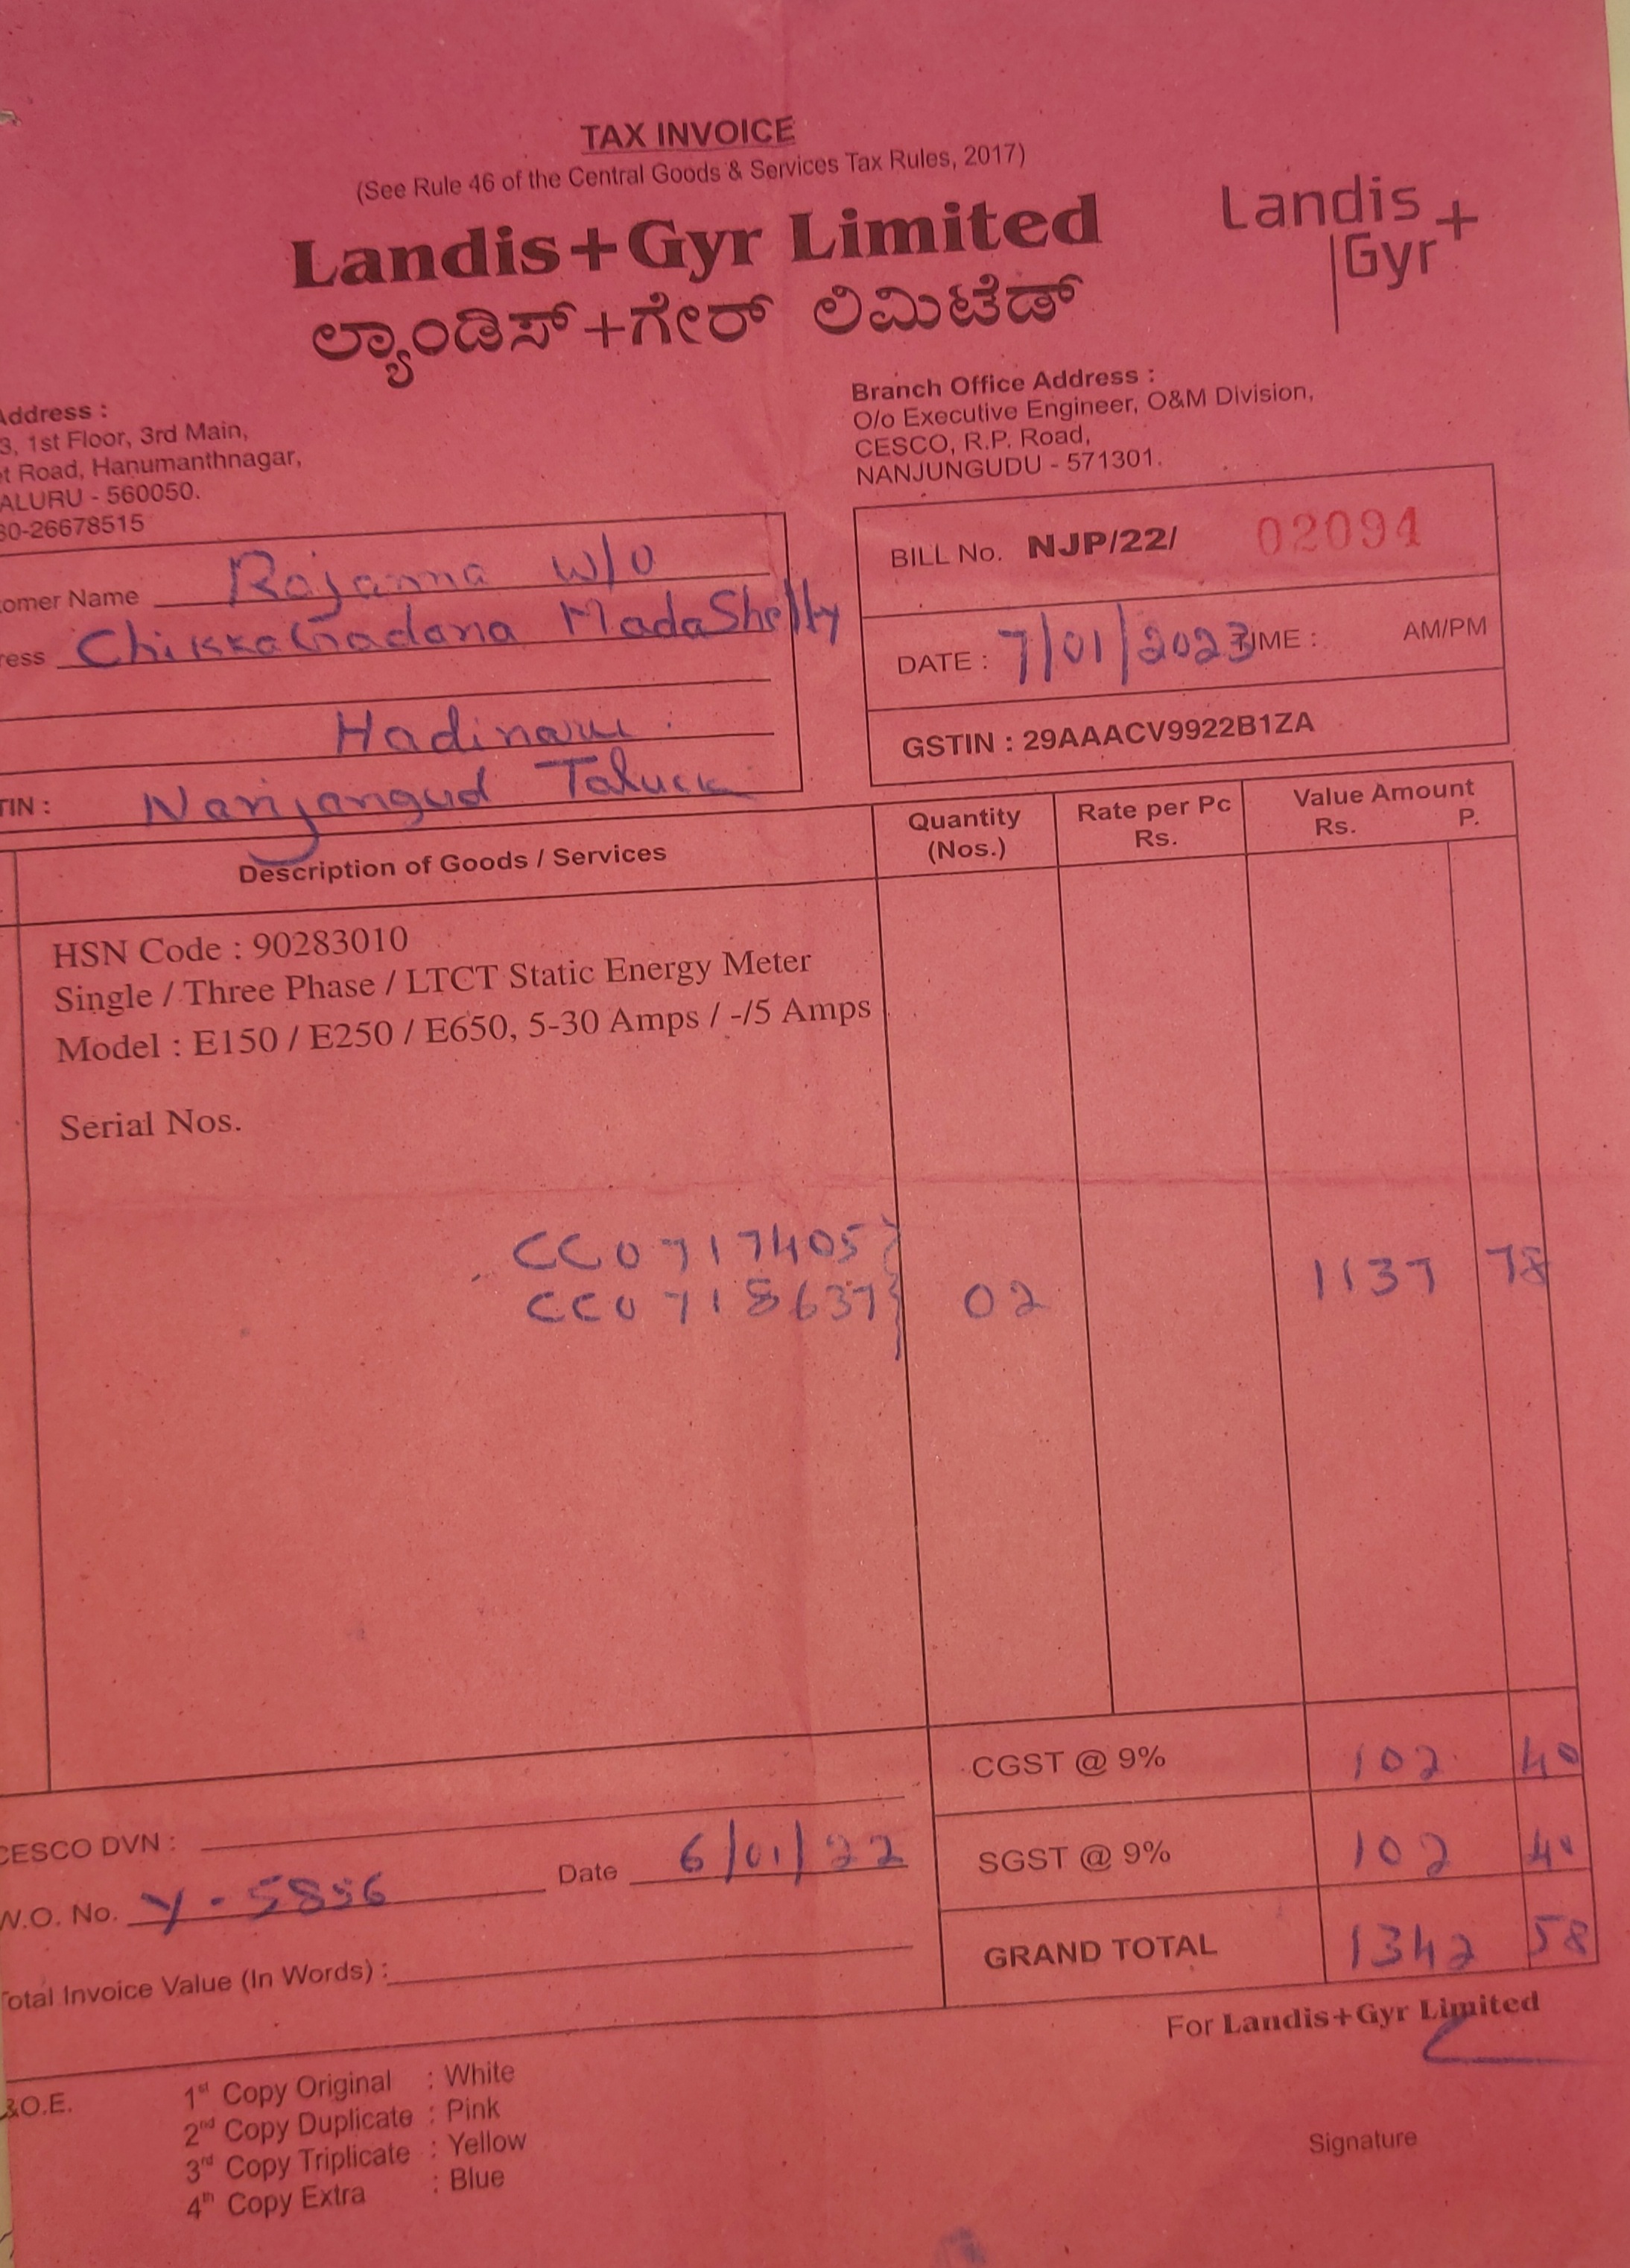 TAX INVOICE
(See Rule 46 of the Central Goods & Services Tax Rules, 2017)
Landis+Gyr Limited
Landis
Gyr+
ಲ್ಯಾಂಡಿಸ್+ಗೇರ್ ಲಿಮಿಟೆಡ್
Address :
3, 1st Floor, 3rd Main,
t Road, Hanumanthnagar,
ALURU - 560050.
30-26678515
Branch Office Address :
O/o Executive Engineer, O&M Division,
CESCO, R.P. Road,
NANJUNGUDU - 571301.
omer Name Rajamma W/O
ress Chikkanadana MadaShetty
Hadinaru :
TIN : Nanjangud Taluck
BILL No. NJP/22/ 02094
DATE : 7/01/2023 TIME : AM/PM
GSTIN : 29AAACV9922B1ZA
Description of Goods / Services
Quantity (Nos.)
Rate per Pc Rs.
Value Amount
Rs. P.
HSN Code : 90283010
Single / Three Phase / LTCT Static Energy Meter
Model : E150 / E250 / E650, 5-30 Amps / -/5 Amps
Serial Nos.
CC0717405
CC0718637 02 1137 78
CGST @ 9% 102 40
SGST @ 9% 102 40
GRAND TOTAL 1342 58
CESCO DVN :
W.O. No. Y-5856 Date 6/01/22
Total Invoice Value (In Words) :
For Landis+Gyr Limited
&O.E.
1st Copy Original : White
2nd Copy Duplicate : Pink
3rd Copy Triplicate : Yellow
4th Copy Extra : Blue
Signature